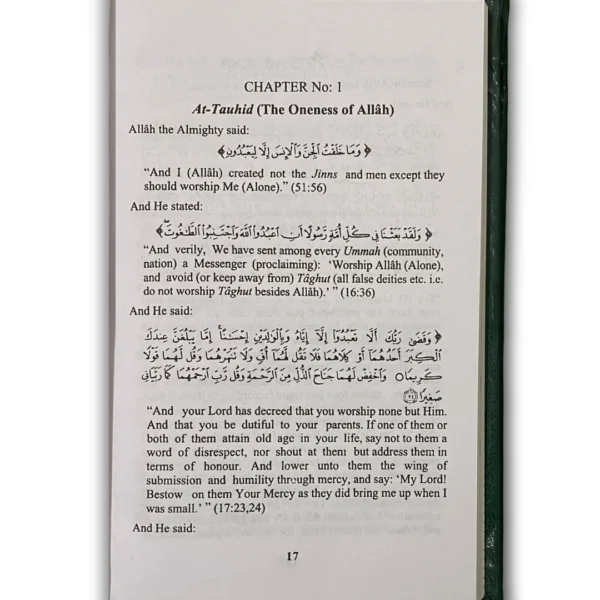 CHAPTER No: 1
At-Tauhid (The Oneness of Allâh)
Allâh the Almighty said:
﴿ وَمَا خَلَقْتُ الْجِنَّ وَالْإِنسَ إِلَّا لِيَعْبُدُونِ ﴾
“And I (Allâh) created not the Jinns and men except they
should worship Me (Alone).” (51:56)
And He stated:
﴿ وَلَقَدْ بَعَثْنَا فِي كُلِّ أُمَّةٍ رَّسُولًا أَنِ اعْبُدُوا اللَّهَ وَاجْتَنِبُوا الطَّاغُوتَ ﴾
“And verily, We have sent among every Ummah (community,
nation) a Messenger (proclaiming): ‘Worship Allâh (Alone),
and avoid (or keep away from) Tâghut (all false deities etc. i.e.
do not worship Tâghut besides Allâh).’ ” (16:36)
And He said:
﴿ وَقَضَىٰ رَبُّكَ أَلَّا تَعْبُدُوا إِلَّا إِيَّاهُ وَبِالْوَالِدَيْنِ إِحْسَانًا ۚ إِمَّا يَبْلُغَنَّ عِندَكَ
الْكِبَرَ أَحَدُهُمَا أَوْ كِلَاهُمَا فَلَا تَقُل لَّهُمَا أُفٍّ وَلَا تَنْهَرْهُمَا وَقُل لَّهُمَا قَوْلًا
كَرِيمًا ○ وَاخْفِضْ لَهُمَا جَنَاحَ الذُّلِّ مِنَ الرَّحْمَةِ وَقُل رَّبِّ ارْحَمْهُمَا كَمَا رَبَّيَانِي
صَغِيرًا ﴿٢٤﴾
“And your Lord has decreed that you worship none but Him.
And that you be dutiful to your parents. If one of them or
both of them attain old age in your life, say not to them a
word of disrespect, nor shout at them but address them in
terms of honour. And lower unto them the wing of
submission and humility through mercy, and say: ‘My Lord!
Bestow on them Your Mercy as they did bring me up when I
was small.’ ” (17:23,24)
And He said:
17